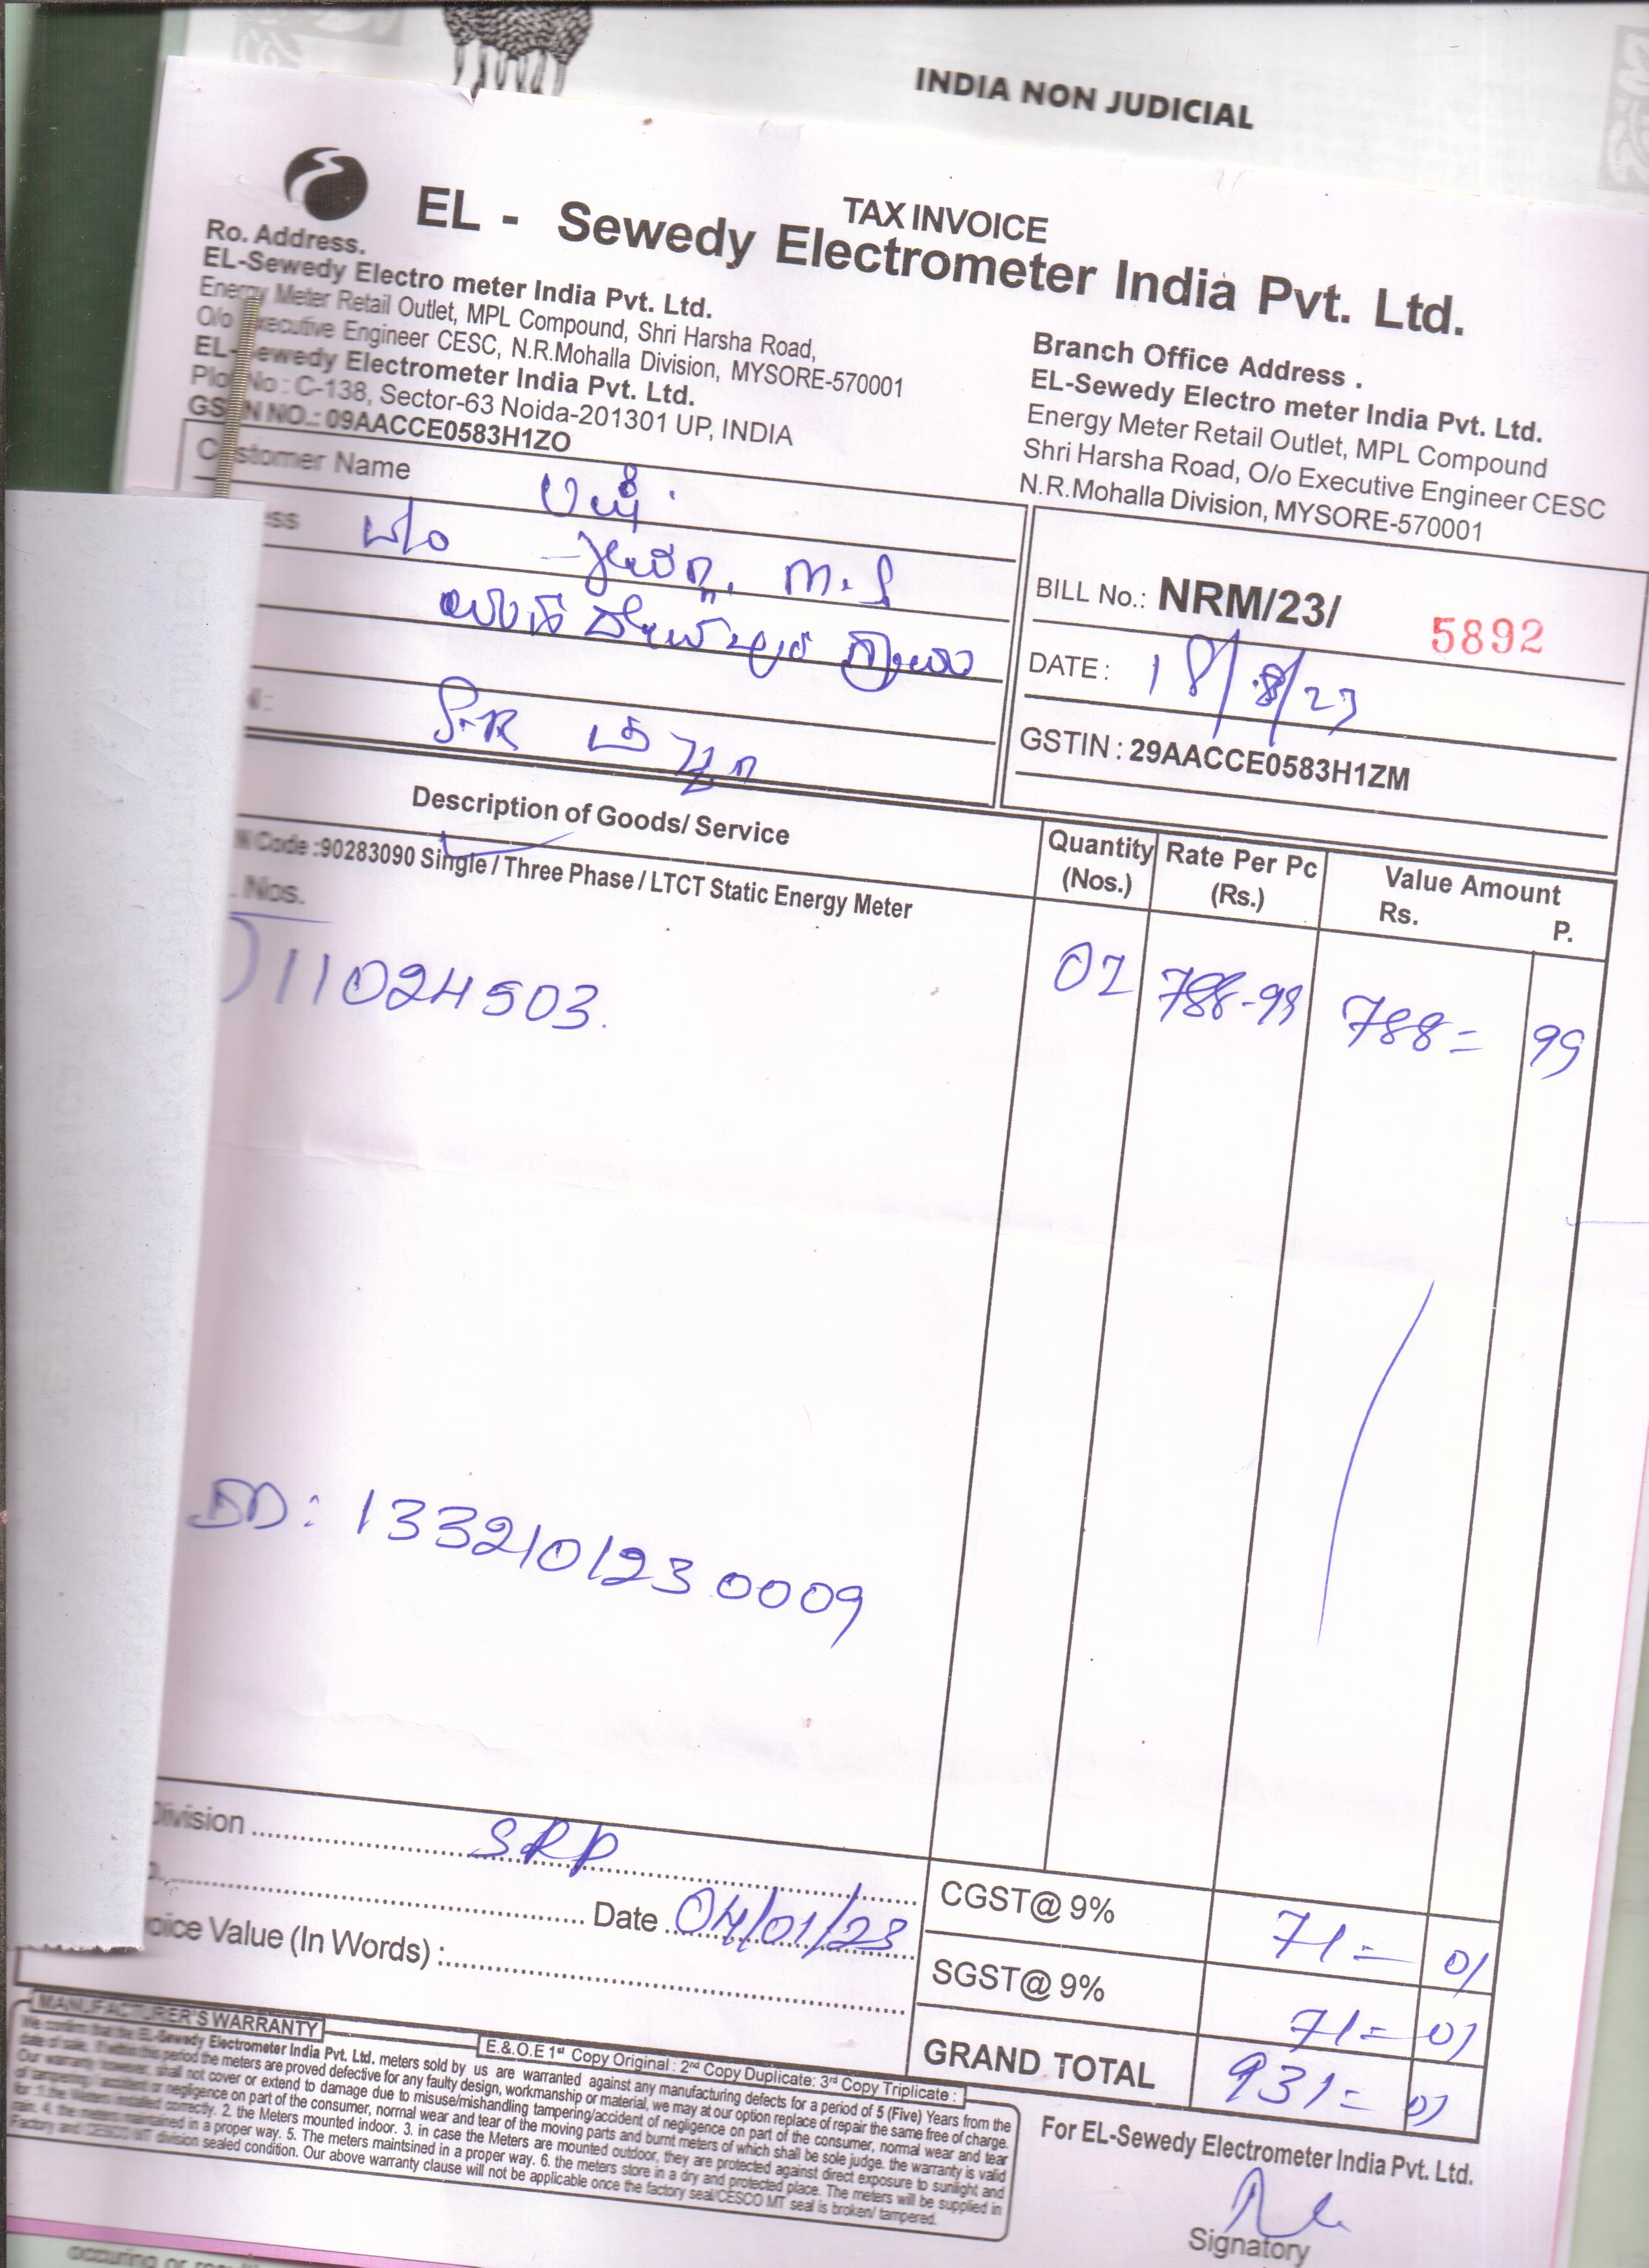 INDIA NON JUDICIAL
TAX INVOICE
EL - Sewedy Electrometer India Pvt. Ltd.
Ro. Address.
EL-Sewedy Electro meter India Pvt. Ltd.
Energy Meter Retail Outlet, MPL Compound, Shri Harsha Road,
O/o Executive Engineer CESC, N.R.Mohalla Division, MYSORE-570001
EL-Sewedy Electrometer India Pvt. Ltd.
Plot No : C-138, Sector-63 Noida-201301 UP, INDIA
GSTIN NO.: 09AACCE0583H1ZO
Branch Office Address .
EL-Sewedy Electro meter India Pvt. Ltd.
Energy Meter Retail Outlet, MPL Compound
Shri Harsha Road, O/o Executive Engineer CESC
N.R.Mohalla Division, MYSORE-570001
Customer Name
ess
M.S
S.R
BILL No.: NRM/23/ 5892
DATE : 18/8/23
GSTIN : 29AACCE0583H1ZM
Description of Goods/ Service
Quantity (Nos.)
Rate Per Pc (Rs.)
Value Amount Rs. P.
Code :90283090 Single / Three Phase / LTCT Static Energy Meter
. Nos.
11024503. 01 788-99 788= 99
DD: 1332101230009
Division SRP
Date 04/01/23
oice Value (In Words) :
CGST@ 9% 71= 01
SGST@ 9% 71= 01
GRAND TOTAL 931= 01
MANUFACTURER'S WARRANTY
E.&.O.E 1st Copy Original : 2nd Copy Duplicate: 3rd Copy Triplicate :
We confirm that the EL-Sewedy Electrometer India Pvt. Ltd. meters sold by us are warranted against any manufacturing defects for a period of 5 (Five) Years from the
date of sale. If within this period the meters are proved defective for any faulty design, workmanship or material, we may at our option replace of repair the same free of charge.
Our warranty however, shall not cover or extend to damage due to misuse/mishandling tampering/accident of negligence on part of the consumer, normal wear and tear
of tampering/ accident or negligence on part of the consumer, normal wear and tear of the moving parts and burnt meters of which shall be sole judge. the warranty is valid
for : 1.the Meters installed correctly. 2. the Meters mounted indoor. 3. in case the Meters are mounted outdoor, they are protected against direct exposure to sunlight and
rain. 4. the meters maintained in a proper way. 5. The meters maintsined in a proper way. 6. the meters store in a dry and protected place. The meters will be supplied in
Factory and CESCO MT division sealed condition. Our above warranty clause will not be applicable once the factory seal/CESCO MT seal is broken/ tampered.
For EL-Sewedy Electrometer India Pvt. Ltd.
Signatory